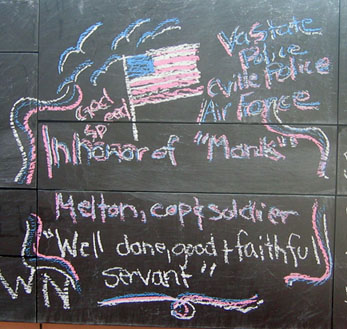 Va State
Police
C'ville Police
Air Force
God
In honor of "Monk"
Melton, cop & soldier
"Well done, good & faithful
servant"
WN